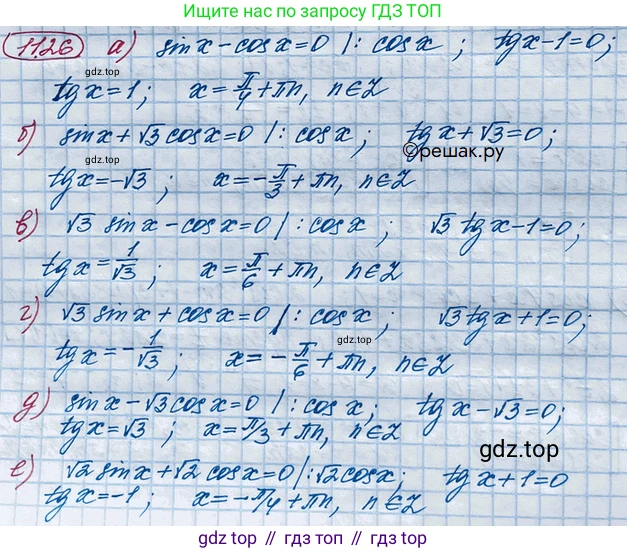 Пишите нам по запросу ГДЗ ТОП
11.26 а) sin x - cos x = 0 |: cos x ; tg x - 1 = 0;
gdz.top
tg x = 1; x = π/4 + πn, n∈Z
б) sin x + √3 cos x = 0 |: cos x ; tg x + √3 = 0;
gdz.top
©решак.ру
tg x = -√3 ; x = -π/3 + πn, n∈Z
в) √3 sin x - cos x = 0 |: cos x ; √3 tg x - 1 = 0;
tg x = 1/√3 ; x = π/6 + πn, n∈Z
г) √3 sin x + cos x = 0 |: cos x ; √3 tg x + 1 = 0;
gdz.top
tg x = -1/√3 ; x = -π/6 + πn, n∈Z
д) sin x - √3 cos x = 0 |: cos x ; tg x - √3 = 0;
tg x = √3 ; x = π/3 + πn, n∈Z
gdz.top
е) √2 sin x + √2 cos x = 0 |: √2 cos x ; tg x + 1 = 0
tg x = -1 ; x = -π/4 + πn, n∈Z
gdz.top // гдз.топ // gdz.top